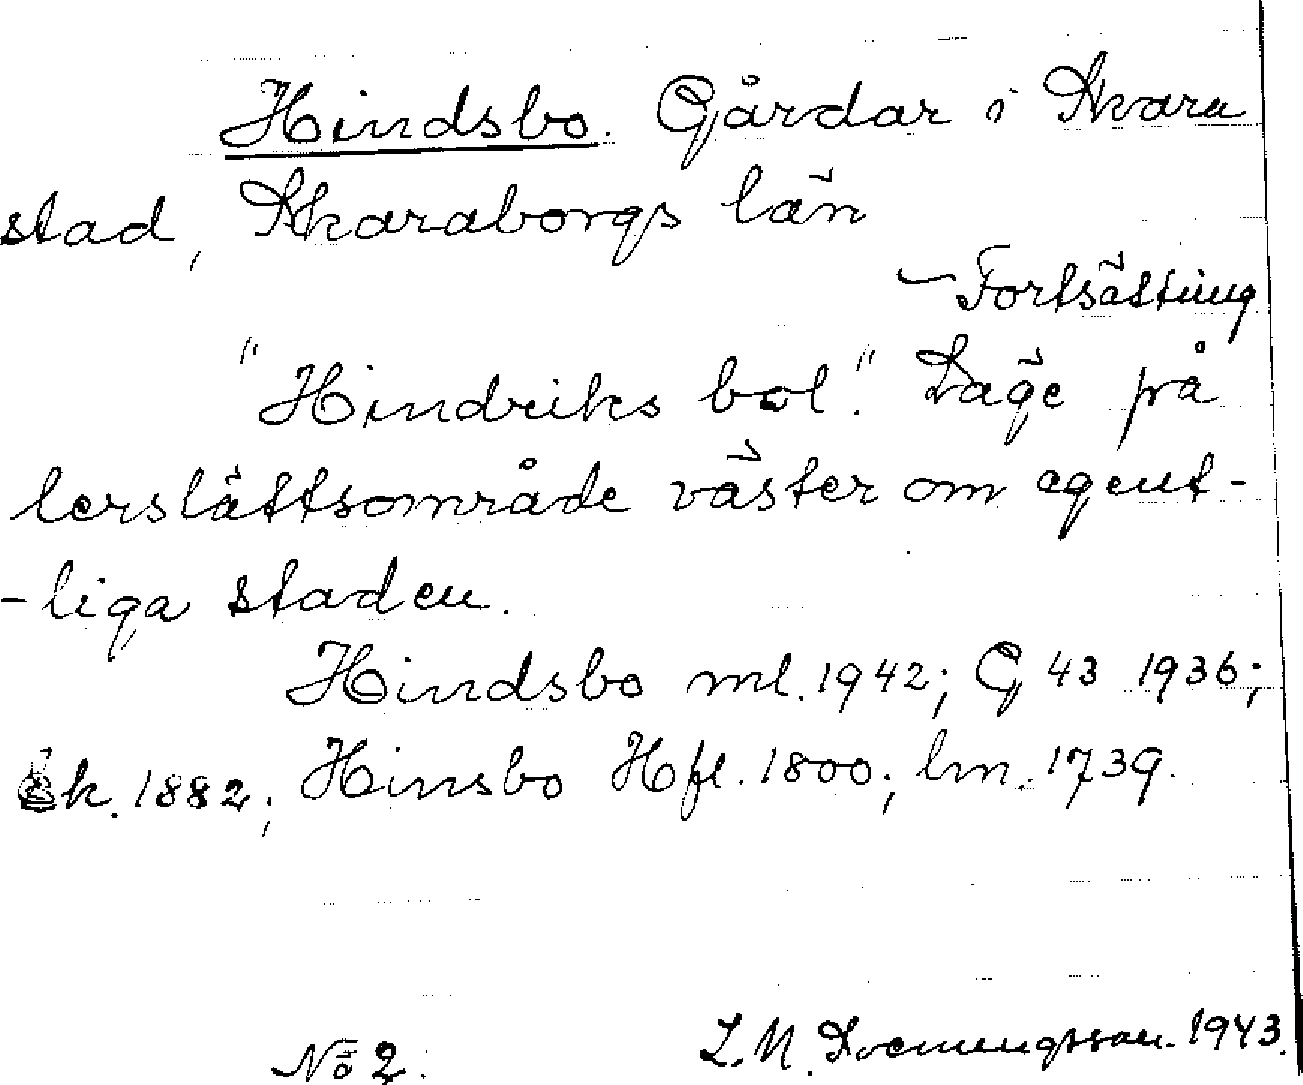 Hindsbo. Gårdar i Skara
stad, Skaraborgs län
– Fortsättning
"Hindriks bol". Läge på
lerslättsområde väster om egent-
-liga staden.
Hindsbo ml. 1942; G 43 1936;
k. 1882; Hinsbo Hfl. 1800; lm. 1739.
No 2.
1943.